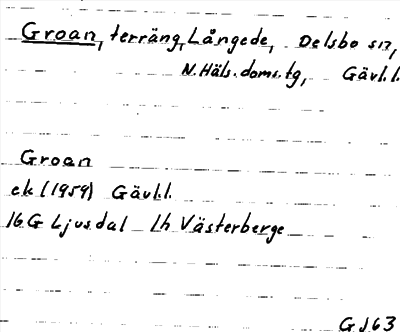 Groan, terräng, Långede, Delsbo sn,
N. Häls. doms. tg, Gävl. l.
Groan
ek (1959) Gävl. l.
16 G Ljusdal 1h Västerberge
G J 63